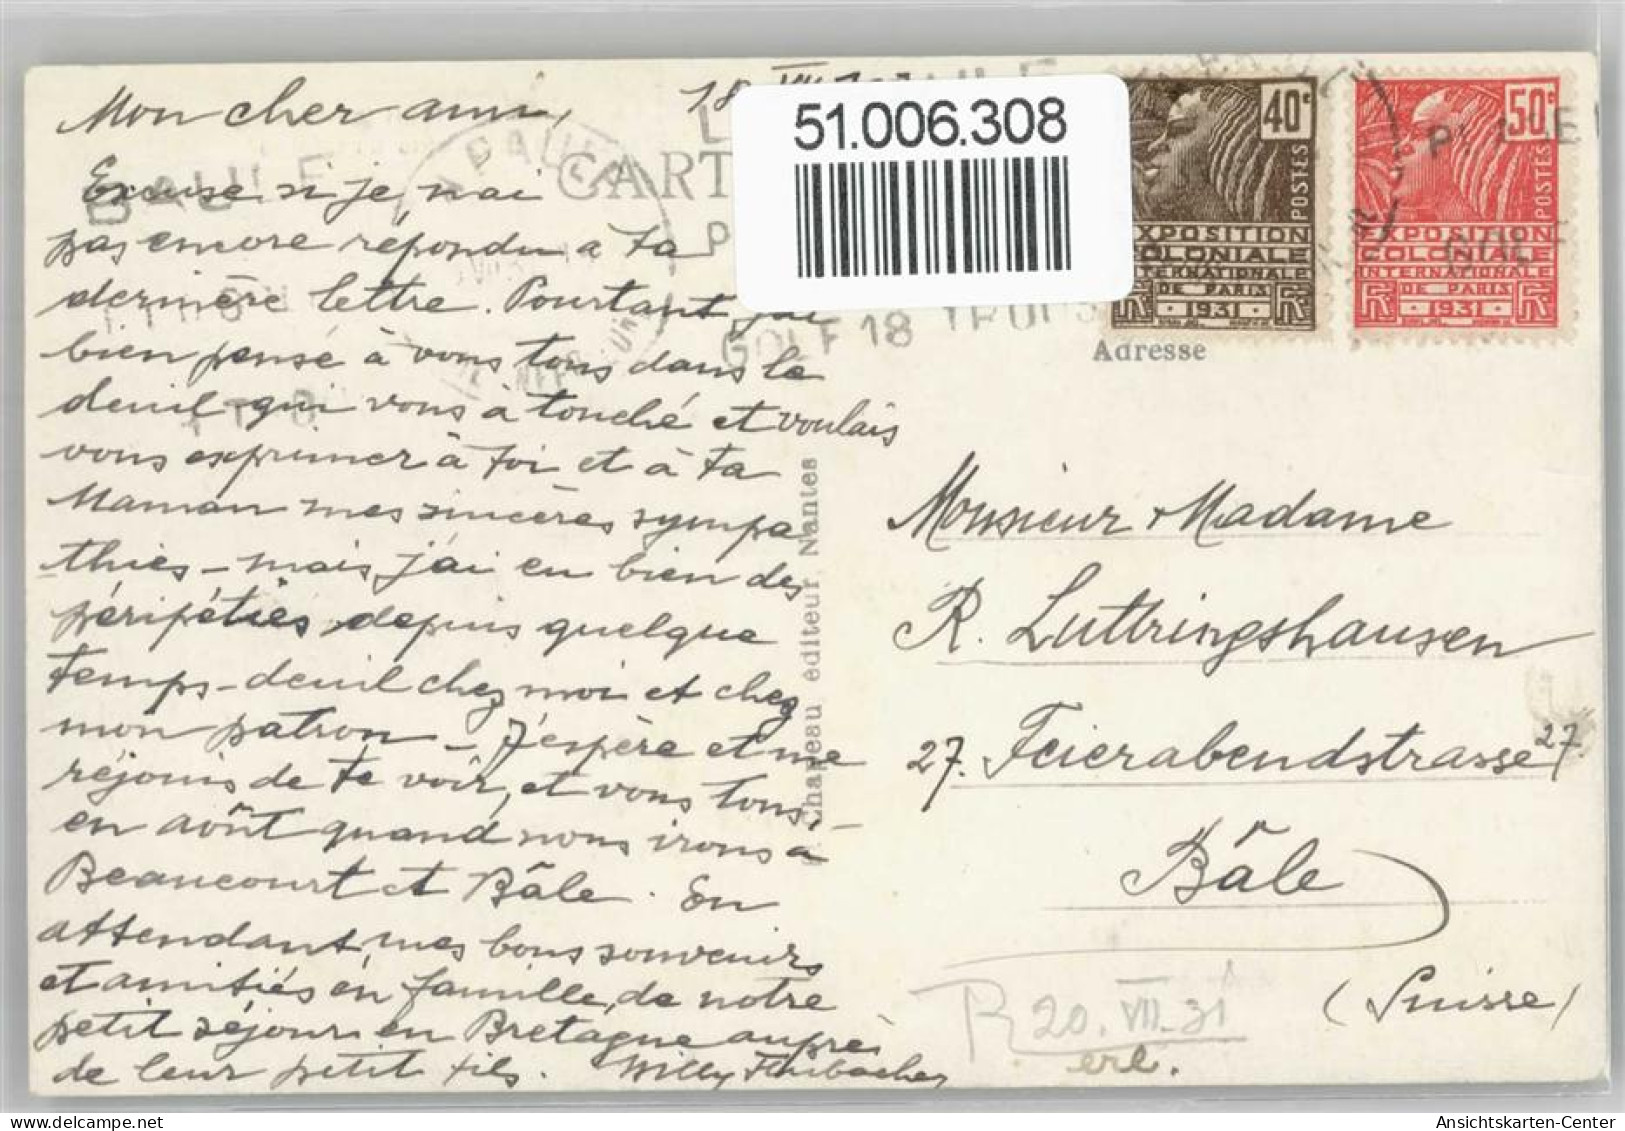 Mon cher ami,
18 VII
Excuse si je n'ai
pas encore répondu à ta
dernière lettre. Pourtant j'ai
bien pensé à vous tous dans le
deuil qui vous a touché et voulais
vous exprimer à toi et à ta
Maman mes sincères sympa
thies - mais j'ai eu bien des
péripéties depuis quelque
temps - deuil chez moi et chez
mon patron - J'espère et me
réjouis de te voir, et vous tous,
en août quand nous irons à
Beaucourt et Bâle. En
attendant, mes bons souvenirs
et amitiés en famille, de notre
petit séjour en Bretagne auprès
de leur petit fils. Willy
CART
51.006.308
GOLF 18 TROUS
LA BAULE
BAULE
40c
POSTES
EXPOSITION
COLONIALE
INTERNATIONALE
DE PARIS
1931
50c
POSTES
EXPOSITION
COLONIALE
INTERNATIONALE
DE PARIS
1931
PLAGE
GOLF
Adresse
Chapeau éditeur, Nantes
Monsieur & Madame
R. Luttringshausen
27. Feierabendstrasse 27.
Bâle
(Suisse)
R 20. VII. 31
erl.
Ansichtskarten-Center